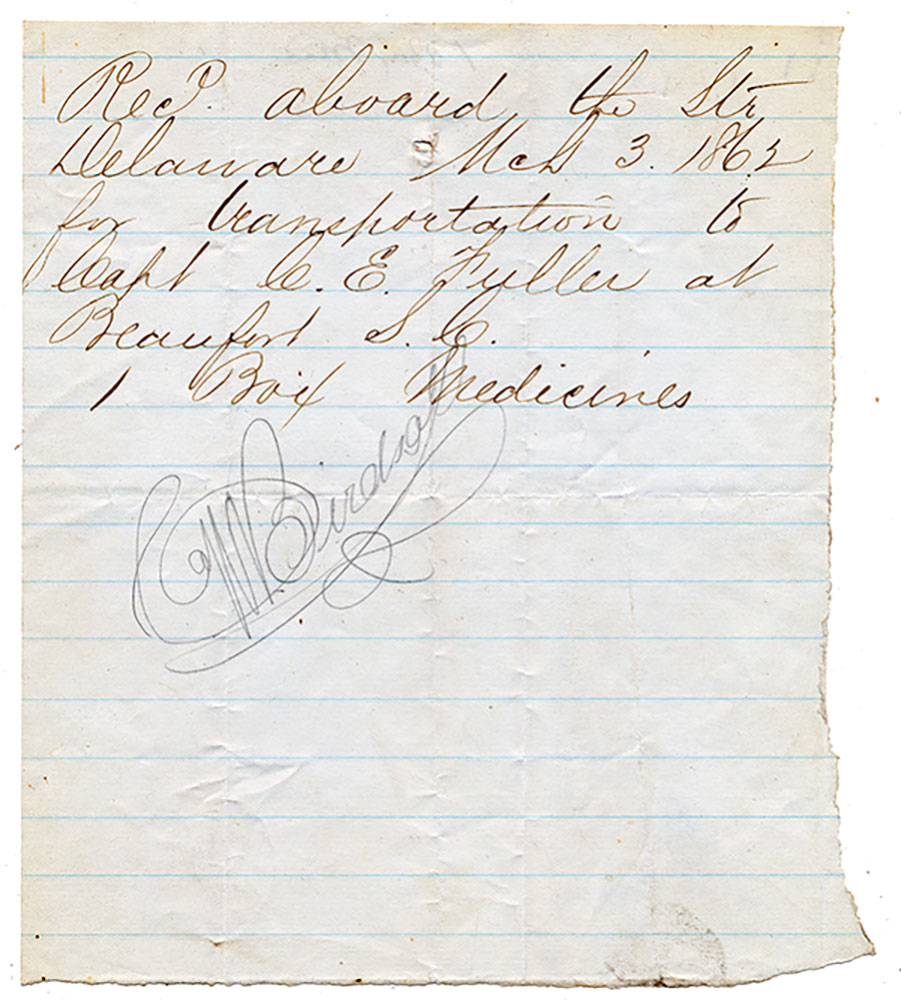 Recd. aboard the Str
Delaware Mch 3. 1862
for transportation to
Capt C. E. Fuller at
Beaufort S. C.
1 Box Medicines
Birdsall